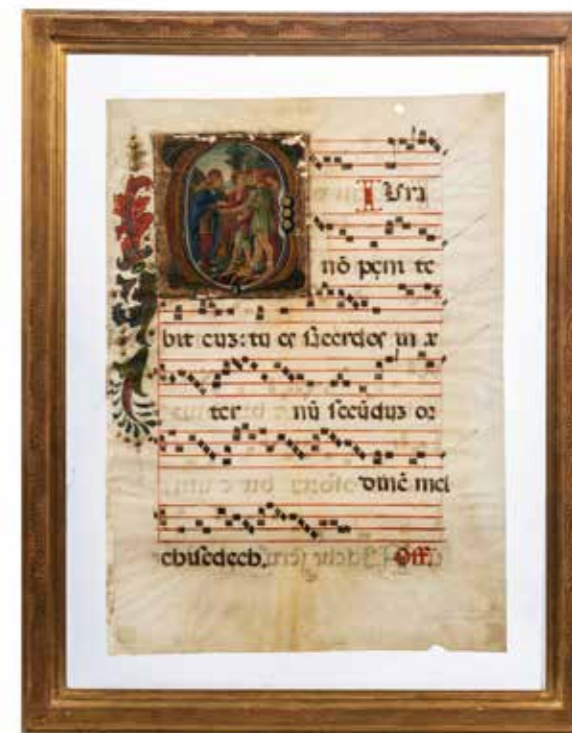 IUra
nō peni te
bit euz: tu es sacerdos in e
ter nū secūduz or
dinē mel
chisedech. Off.